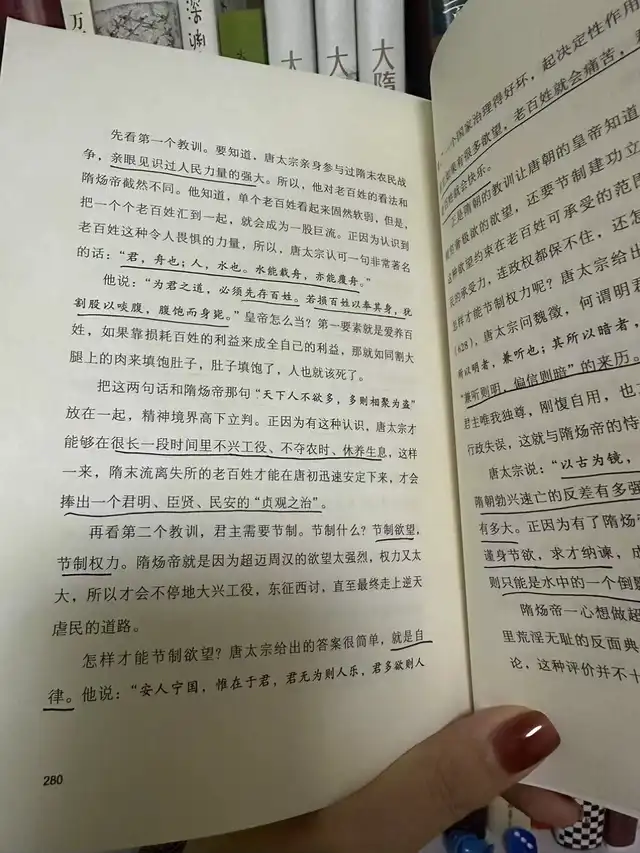 万
深渊
大
大
大隋
先看第一个教训。要知道，唐太宗亲身参与过隋末农民战
争，亲眼见识过人民力量的强大。所以，他对老百姓的看法和
隋炀帝截然不同。他知道，单个老百姓看起来固然软弱，但是，
把一个个老百姓汇到一起，就会成为一股巨流。正因为认识到
老百姓这种令人畏惧的力量，所以，唐太宗认可一句非常著名
的话：“君，舟也；人，水也。水能载舟，亦能覆舟。”
他说：“为君之道，必须先存百姓。若损百姓以奉其身，犹
割股以啖腹，腹饱而身毙。”皇帝怎么当？第一要素就是爱养百
姓，如果靠损耗百姓的利益来成全自己的利益，那就如同割大
腿上的肉来填饱肚子，肚子填饱了，人也就该死了。
把这两句话和隋炀帝那句“天下人不欲多，多则相聚为盗”
放在一起，精神境界高下立判。正因为有这种认识，唐太宗才
能够在很长一段时间里不兴工役、不夺农时、休养生息，这样
一来，隋末流离失所的老百姓才能在唐初迅速安定下来，才会
捧出一个君明、臣贤、民安的“贞观之治”。
再看第二个教训，君主需要节制。节制什么？节制欲望，
节制权力。隋炀帝就是因为超迈周汉的欲望太强烈，权力又太
大，所以才会不停地大兴工役，东征西讨，直至最终走上逆天
虐民的道路。
怎样才能节制欲望？唐太宗给出的答案很简单，就是自
律。他说：“安人宁国，惟在于君，君无为则人乐，君多欲则人
280
个国家治理得好坏，起决定性作用
果有很多欲望，老百姓就会痛苦，
就会快乐。
正是隋朝的教训让唐朝的皇帝知道
极欲的欲望，还要节制建功立
欲望约束在老百姓可承受的范
的承受力，连政权都保不住，还怎
怎样才能节制权力呢？唐太宗给出
（628），唐太宗问魏徵，何谓明君
所以明者，兼听也；其所以暗者，
“兼听则明，偏信则暗”的来历。
君主唯我独尊，刚愎自用，也
行政失误，这就与隋炀帝的恃
唐太宗说：“以古为镜，
隋朝勃兴速亡的反差有多强
有多大。正因为有了隋炀帝
谨身节欲，求才纳谏，成
则只能是水中的一个倒影
隋炀帝一心想做超
里荒淫无耻的反面典
论，这种评价并不十